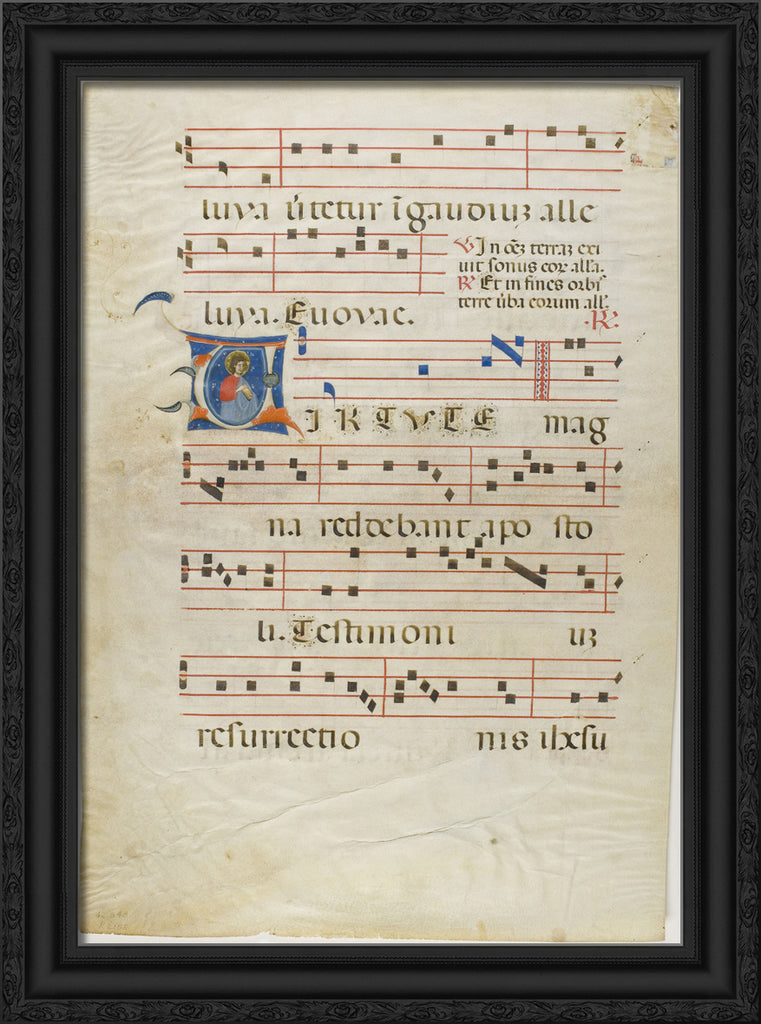 luya ūtetur ī gaudiuꝫ alle
luya. Euovae.
℣ In oēꝫ terraꝫ exi
uit sonus eoꝝ alla.
℟ Et in fines orbis
terre ūba eorum all.
℟.
VIRTVTE mag
na reddebant aposto
li. Testimoni uꝫ
resurrectio nis ihxpu